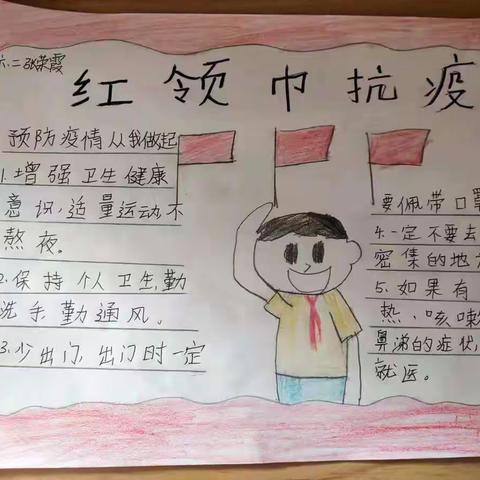 六、二张荣霞
红领巾抗疫
预防疫情从我做起
1.增强卫生健康
意识,适量运动不
熬夜。
2.保持个人卫生,勤
洗手,勤通风。
3.少出门,出门时一定
要佩带口罩
4.一定不要去
密集的地方
5.如果有
热、咳嗽
鼻涕的症状,
就医。